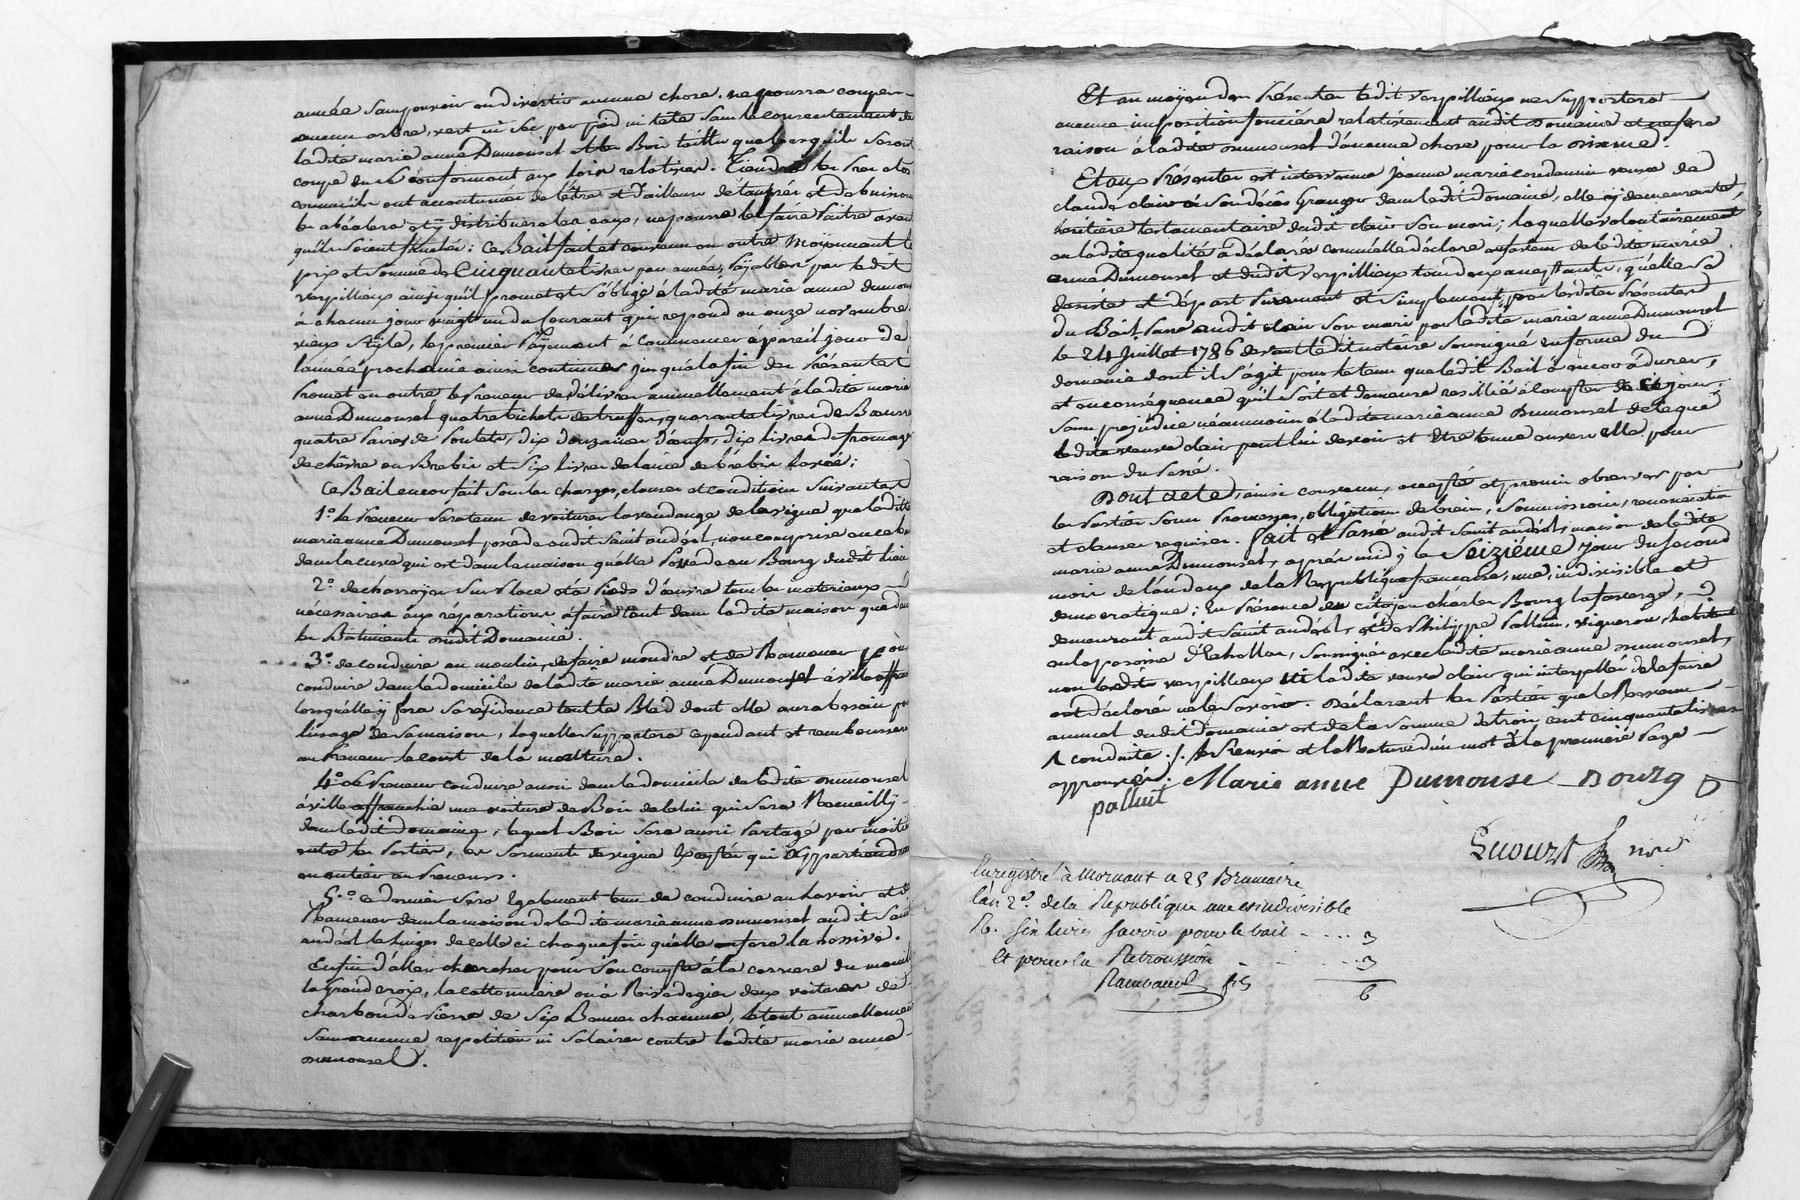 année sans pouvoir en divertir aucune chose. ne pourra couper
aucun arbre, vert ni sec par pied ni tete sans le consentement de
ladite marie anne Dumonsel et les Bois taillis quelconques seront
coupé en conformant aux loix relatives. Tiendra les Prés
comme ils ont accoutumés de l'être et d'ailleurs détaupés et de buissons
les abéalera et y distribuera les eaux, ne pourra les faire Paitre avant
qu'ils soient fauchés: Ce Bail fait et convenu en outre moÿennant le
prix et Somme de Cinquante livres par année, Païables par ledit
verpillieux ainsi qu'il promet et s'oblige à ladite marie anne dumonsel
à chacun jour vingt un du Courant que repond au onze novembre
vieux Stÿle, le premier Paÿement à Commencer à pareil jour de
l'année prochaine ainsi continuer jusqu'à la fin des Présentes
Promet en outre le Preneur de délivrer annuellement à ladite marie
anne Dumonsel quatre bichets de truffes, quarante livres de Beurre
quatre Paires de Poulets, dix douzaines d'œufs, dix livres de fromage
de chêvre ou Brebis et Six livres de laine de brebis lavée;
Ce Bail encor fait Sous les charges, clauses et conditions Suivantes
1.° Le Preneur Sera tenu de voiturer la vendange de la vigne que ladite
marie anne Dumonsel possede audit Saint andéol, non comprise en ce bail
dans la cuve qui est dans la maison qu'elle Possede au Bourg dudit lieu
2.° de charroÿer Sur Place et à Pieds d'œuvre tous les matériaux
nécessaires aux réparations à faire tant dans ladite maison que dans
les Bâtiments dudit Domaine.
3.° de conduire au moulin, de faire moudre et de Ramener pour
conduire dans le domicile de ladite marie anne Dumonsel à villeaffranchie
lorsqu'elle ÿ fera Sa résidence tout le Bled dont elle aura besoin pour
l'usage de Sa maison, laquelle Supportera cependant et remboursera
au Preneur le cout de la moulture.
4.° Le Preneur conduira aussi dans le domicile de ladite dumonsel
à ville affranchie une voiture de Bois de celui qui Sera Recueilly
dans ledit domaine, lequel Bois Sera aussi Partagé par moitié
entre les Parties, les Sarments de vigne Exceptés qui appartiendront
en entier au Preneur.
5.° Ce dernier Sera Egalement tenu de conduire au lavoir et de
Ramener dans la maison de ladite marie anne dumonsel audit Saint
andéol le linges de celle ci chaque fois qu'elle en fera la lessive.
Enfin d'aller chercher pour Son compte à la carriere du mouil
la grand croix, la cattonniere ou à Rivedegier deux voitures de
charbon de Pierre de Six Bennes chacune, le tout annuellement
Sans aucune repetition ni Salaires contre ladite marie anne
dumonsel.
Et au moÿen des Présentes ledit verpillieux ne Supportera
aucune imposition fonciere relativement audit Domaine et ne fera
raison à ladite dumonsel d'aucune chose pour la dixme.
Et aux Présentes est intervenue jeanne marie veuve de
claude clair à Son décès Granger dans ledit domaine, elle ÿ demeurante,
héritière testamentaire dudit clair Son mari; laquelle volontairement
en ladite qualité a déclaré comme elle déclare en faveur de ladite marie
anne Dumonsel et dudit verpillieux tous deux acceptants, qu'elle Se
désiste et départ Purement et Simplement, par lesdites Présentes
du Bail Passé audit clair Son mari par ladite marie anne Dumonsel
le 24 Juillet 1786 devant ledit notaire Soussigné en forme du
domaine dont il S'agit pour le tems que ledit Bail à encor à durer,
et en conséquence qu'il Soit et demeure resillié à compter de ce jour
Sans préjudice néanmoins à ladite marie anne Dumonsel de ce que
ladite veuve clair peut lui devoir et Etre tenue envers elle pour
raison du Passé.
Dont acte, ainsi convenu, accepté et promis observer par
les Parties Sous Promesses, obligation de biens, Soumissions, renonciations
et clauses requises. Fait et Passé audit Saint andéol, maison de ladite
marie anne Dumonsel, après midÿ le Seiziéme jour du Second
mois de l'an deux de la République françoise, une, indivisible et
democratique: En Présence du citoÿen charles Bourg lafaverge,
demeurant audit Saint andéol, et de Philippe Palluit, vigneron, habitant
en la paroisse d'Echallas, Soussignés avec ladite marie anne dumonsel,
non ledit verpillieux ni ladite veuve clair qui interpellés de le faire
ont déclaré ne le Savoir. Déclarant les Parties que le Revenu
annuel dudit Domaine est de la Somme de trois cent cinquante livres
conduite ./. les Renvois et la Rature d'un mot à la premiere Page
approuvés. Marie anne Dumonse Bourg
palluit
Enregistré à Mornant ce 25 Brumaire
l'an 2.e de la République une et indivisible
R. Six livres Savoir pour le bail .... 3
Et pour la Retroussion ... 3
Rambaud 6